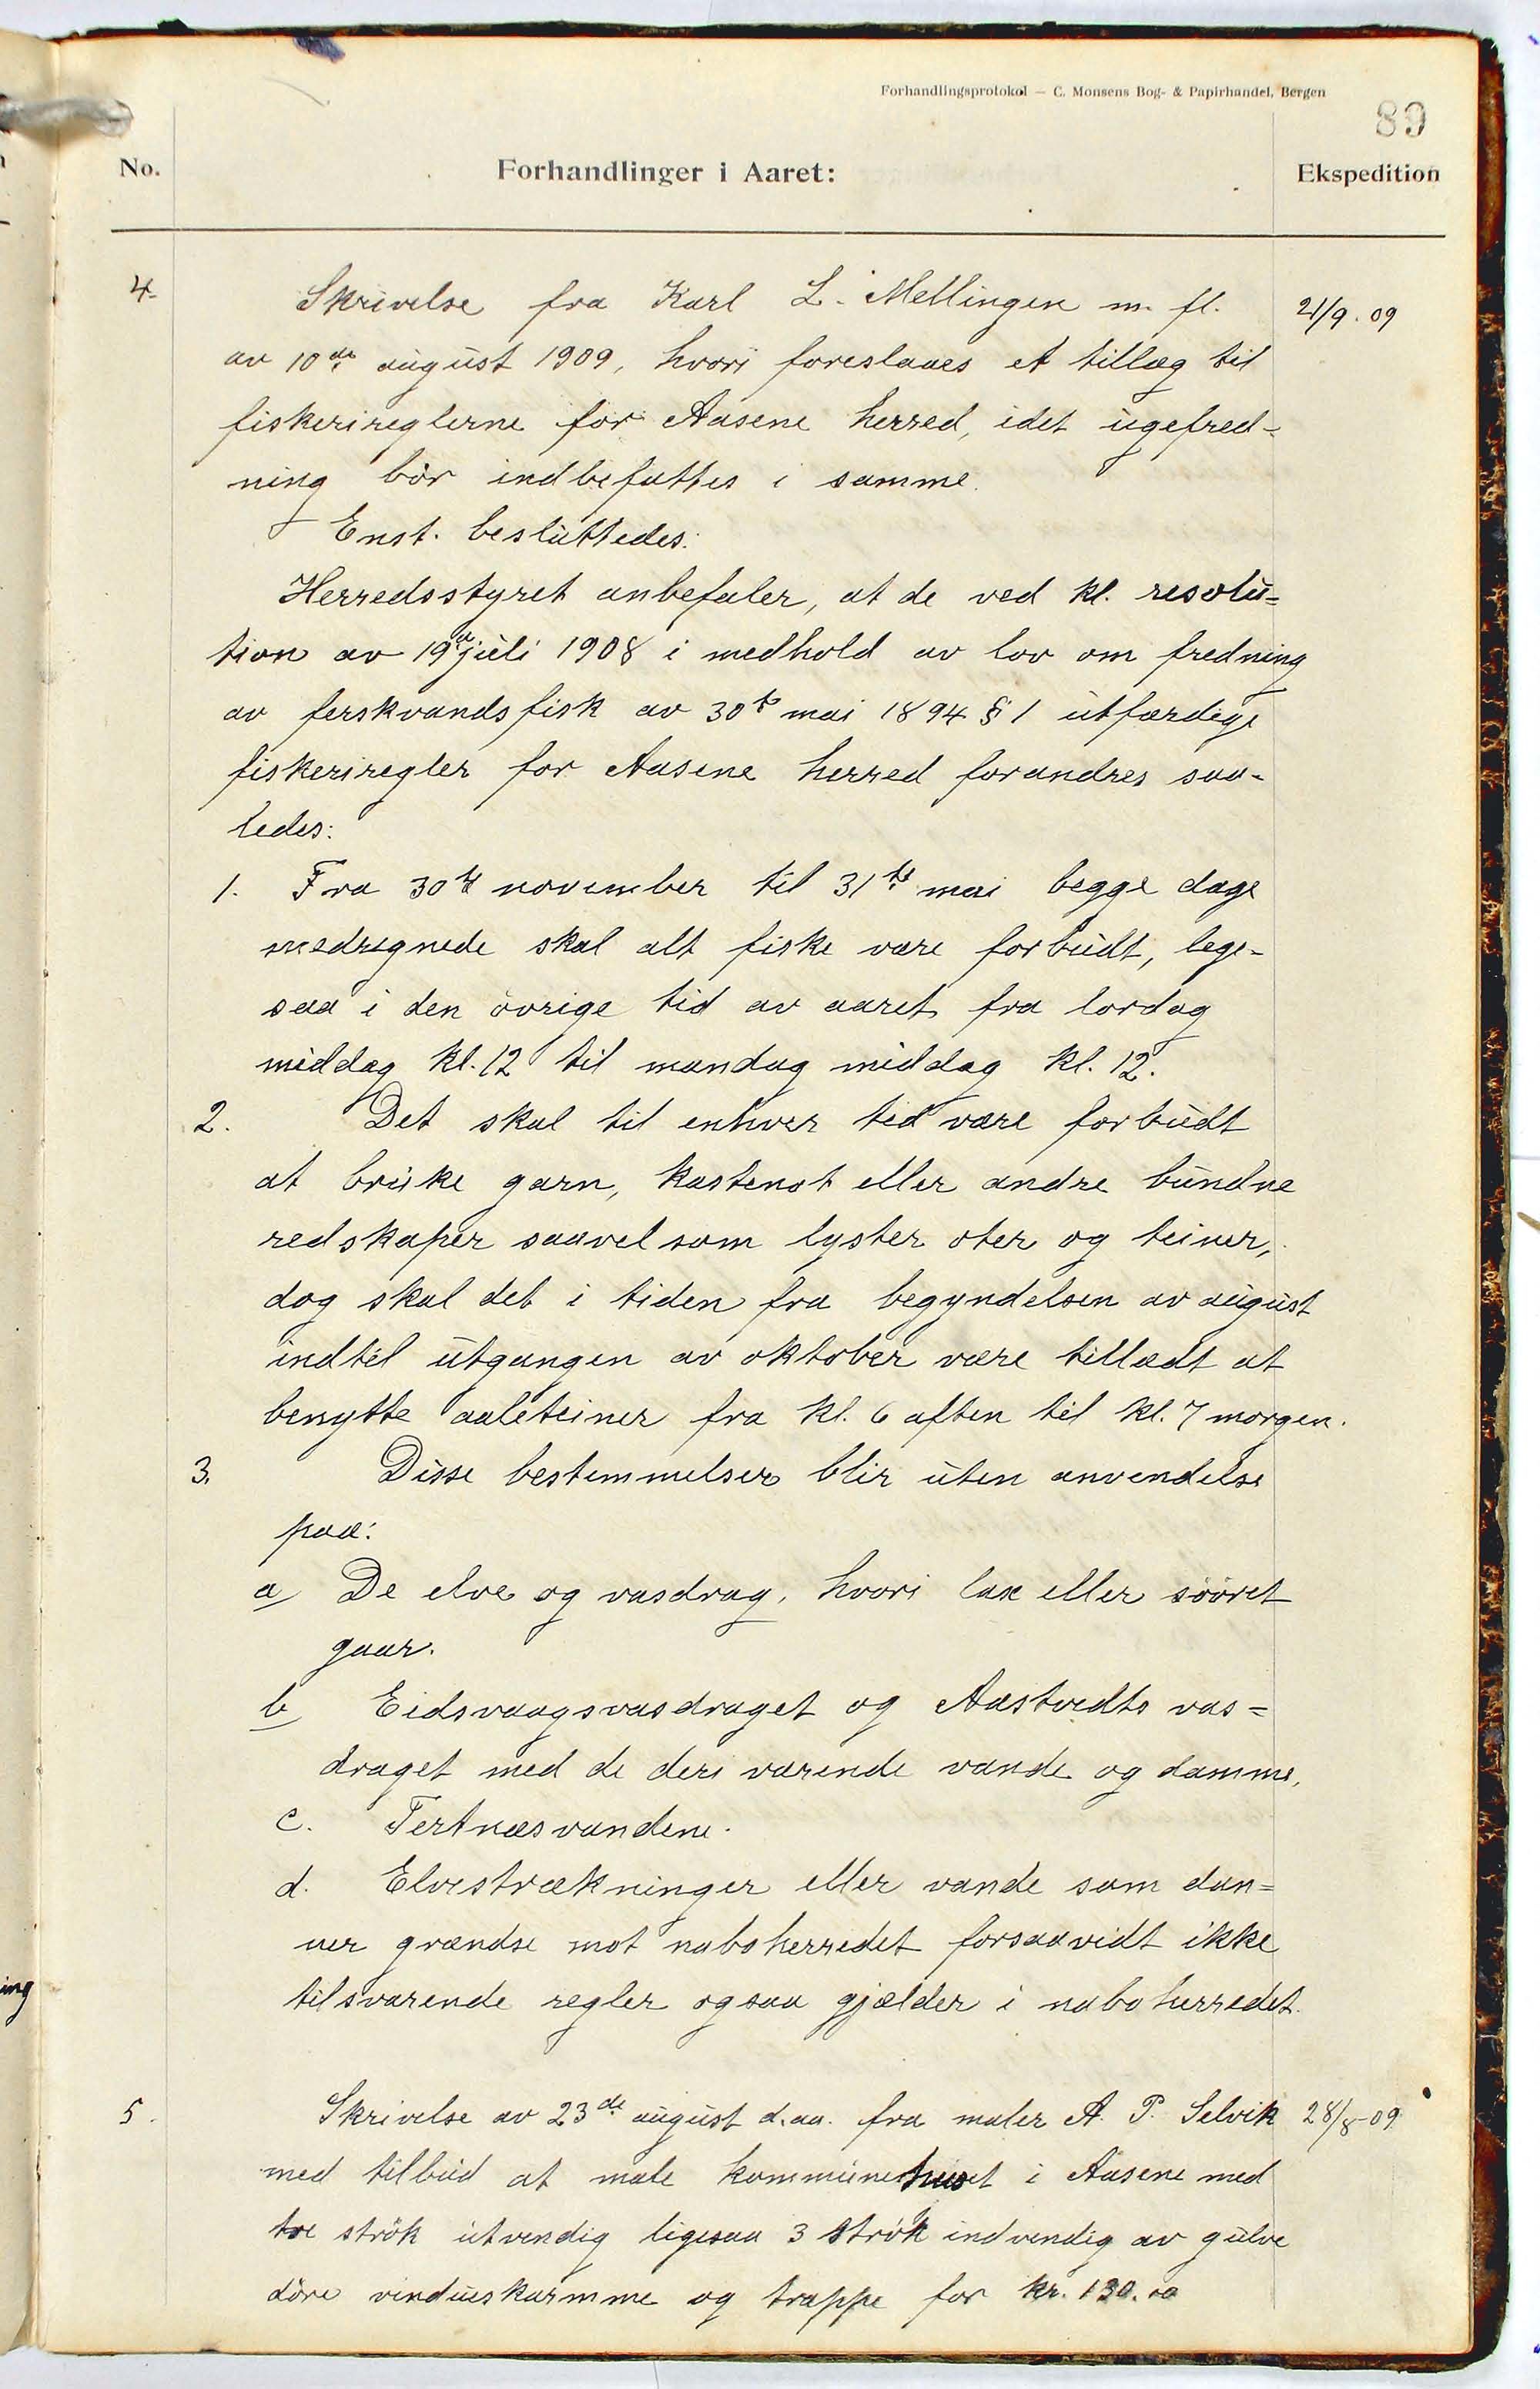 Forhandlingsprotokol – C. Monsens Bog- & Papirhandel, Bergen
89
No. Forhandlinger i Aaret: Ekspedition
4. Skrivelse fra Karl L. Mellingen m. fl. 21/9.09
av 10de august 1909, hvori foreslaaes et tillæg til
fiskerireglerne for Aasene herred, idet ugefred-
ning bør indbefattes i samme.
Enst. besluttedes:
Herredsstyret anbefaler, at de ved kl. resolu=
tion av 19de juli 1908 i medhold av lov om fredning
av ferskvandsfisk av 30te mai 1894 § 1 utfærdige
fiskeriregler for Aasene herred forandres saa-
ledes:
1. Fra 30te november til 31te mai begge dage
medregnede skal alt fiske være forbudt, lege-
saa i den övrige tid av aaret fra lordag
middag kl. 12 til mandag middag kl. 12.
2. Det skal til enhver tid være forbudt
at bruke garn, kastenot eller andre bundne
redskaper saavelsom lyster oter og teiner,
dog skal det i tiden fra begyndelsen av august
indtil utgangen av oktober være tilladt at
benytte aaleteiner fra kl. 6 aften til kl. 7 morgen.
3. Disse bestemmelser blir uten anvendelse
paa:
a/ De elve og vasdrag, hvori lax eller sööret
gaar.
b/ Eidsvaagsvasdraget og Aastvedts vas=
draget med de deri værende vande og damme,
c. Tertnæsvandene.
d. Elvestrækninger eller vande som dan=
ner grændse mot naboherredet forsaavidt ikke
tilsvarende regler ogsaa gjælder i naboherredet.
5. Skrivelse av 23de august d.aa. fra maler A. P. Selvik 28/8-09
med tilbud at male kommunehuset i Aasene med
tre strök utvendig ligesaa 3 strök indvendig av gulve
döre vindueskarmme og trappe for kr. 130.00
ing